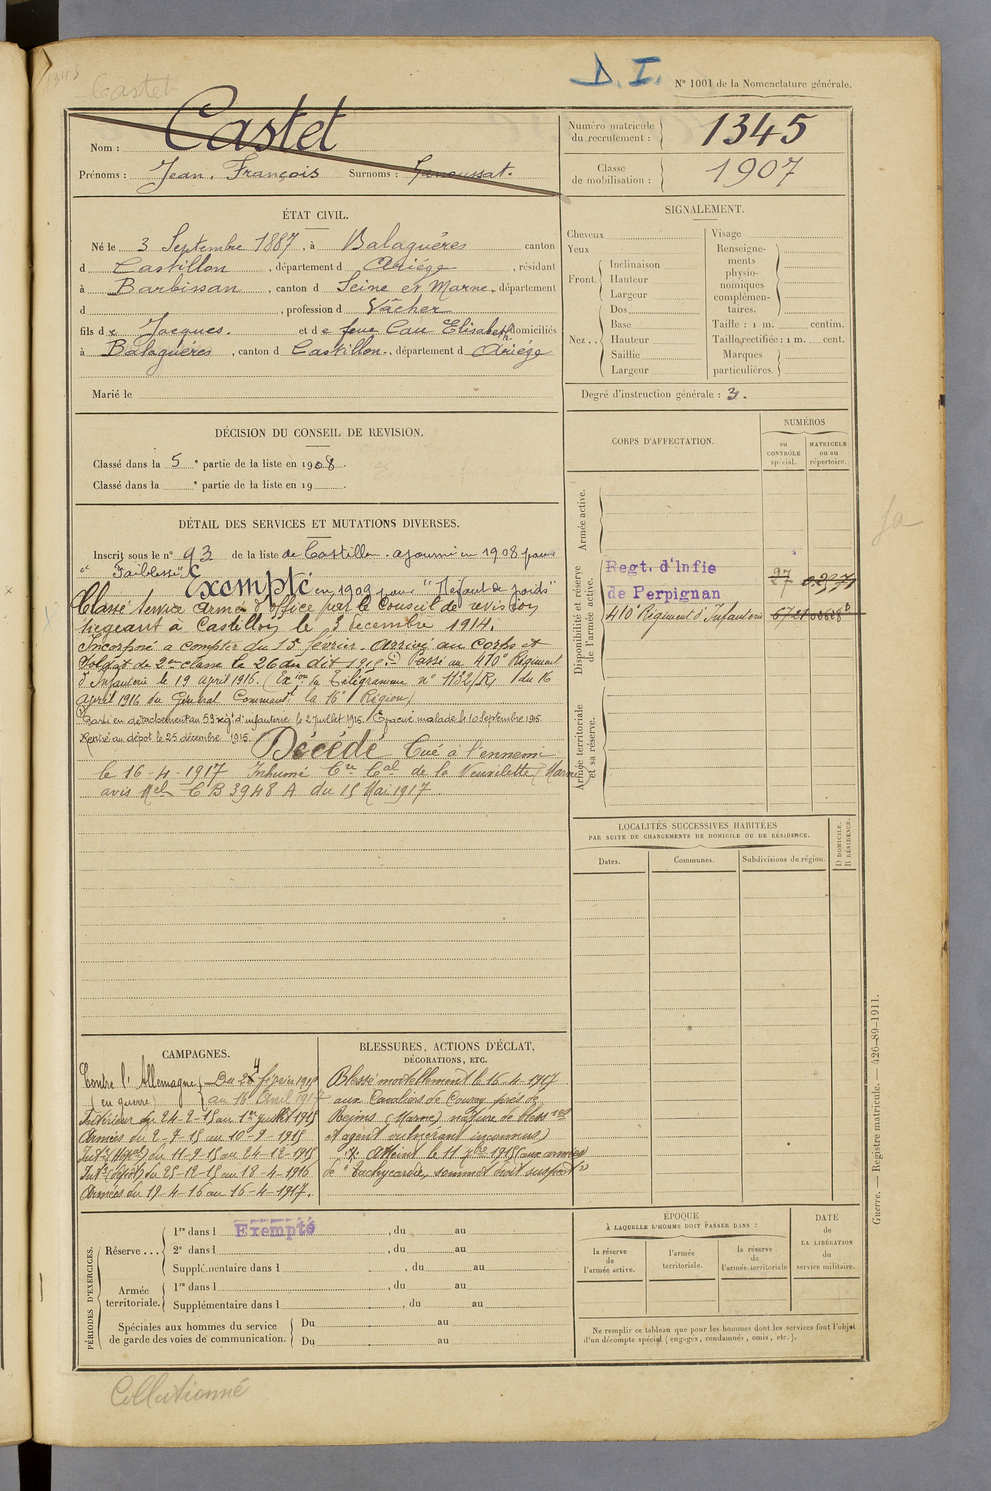 1343
Castet
D. I.
N° 1001 de la Nomenclature générale.
Nom : Castet
Prénoms : Jean, François Surnoms :
Numéro matricule du recrutement : 1345
Classe de mobilisation : 1907
ÉTAT CIVIL.
Né le 3 Septembre 1887, à Balaguéres canton
d Castillon, département d Ariége, résidant
à Barbissan, canton d Seine et Marne, département
d , profession d Vâcher
fils de Jacques. et de feue Cau Elisabeth domiciliés
à Balaguéres, canton d Castillon, département d Ariége
Marié le
SIGNALEMENT.
Cheveux
Yeux
Front. Inclinaison
Hauteur
Largeur
Nez . . Dos
Base
Hauteur
Saillie
Largeur
Visage
Renseignements physionomiques complémentaires.
Taille : 1 m. centim.
Taille rectifiée : 1 m. cent.
Marques particulières.
Degré d'instruction générale : 3.
DÉCISION DU CONSEIL DE REVISION.
Classé dans la 5 e partie de la liste en 1908.
Classé dans la e partie de la liste en 19
CORPS D'AFFECTATION.
NUMÉROS
au CONTRÔLE spécial.
MATRICULE ou au répertoire.
Armée active.
Disponibilité et réserve de l'armée active.
Regt. d'Infie
de Perpignan
410e Régiment d'Infanterie
Armée territoriale et sa réserve.
DÉTAIL DES SERVICES ET MUTATIONS DIVERSES.
Inscrit sous le n° 93 de la liste de Castillon. ajourné en 1908 pour
" Faiblesse"
Exempté en 1909 pour "Défaut de poids"
Classé service armé d'office par le Conseil de revision
siégeant à Castillon le 3 décembre 1914.
Incorporé à compter du 15 février. arrivé au corps et
soldat de 2e classe le 26 du dit 1915. (1) Passé au 410e Régiment
d'Infanterie le 19 avril 1916. (Exion du Télégramme n° 1132/R, du 16
avril 1916 du Général Commandt la 16e Région)
(1) Parti en détachement au 53e regt d'infanterie le 2 juillet 1915. Evacué malade le 10 septembre 1915
Rentré au dépôt le 25 décembre 1915.
Décédé Tué à l'ennemi
le 16-4-1917 Inhumé Cre Cal de la Neuvilette (Marne)
avis Mel CB 3948 A du 15 Mai 1917.
LOCALITÉS SUCCESSIVES HABITÉES
PAR SUITE DE CHANGEMENTS DE DOMICILE OU DE RÉSIDENCE.
Dates. Communes. Subdivisions de région. D DOMICILE. R RÉSIDENCE.
CAMPAGNES.
Contre l'Allemagne (Du 24 février 1915
(en guerre) au 16 Avril 1917
Intérieur du 24-2-15 au 1er juillet 1915
Armées du 2-7-15 au 10-9-1915
Intr (Hôpal) du 11-9-15 au 24-12-1915
Intr (dépôt) du 25-12-15 au 18-4-1916
Armées du 19-4-16 au 16-4-1917.
BLESSURES, ACTIONS D'ÉCLAT,
DÉCORATIONS, ETC.
Blessé mortellement le 16-4-1917
aux Cavaliers de Courcy près de
Reims (Marne) nature de bless res
et agent vulnérant inconnus)
Atteint le 11 7bre 1915 (aux armées
de "Tachycardie, sommet droit suspect"
PÉRIODES D'EXERCICES.
Réserve . . . 1re dans l Exempté , du au
2e dans l , du au
Supplémentaire dans l , du au
Armée territoriale. 1re dans l , du au
Supplémentaire dans l , du au
Spéciales aux hommes du service de garde des voies de communication. Du au
Du au
ÉPOQUE
À LAQUELLE L'HOMME DOIT PASSER DANS :
la réserve de l'armée active.
l'armée territoriale.
la réserve de l'armée territoriale
DATE DE LA LIBÉRATION du service militaire.
Ne remplir ce tableau que pour les hommes dont les services font l'objet
d'un décompte spécial (engagés, condamnés, omis, etc.).
Guerre. — Registre matricule. — 426-89-1911.
Collationné